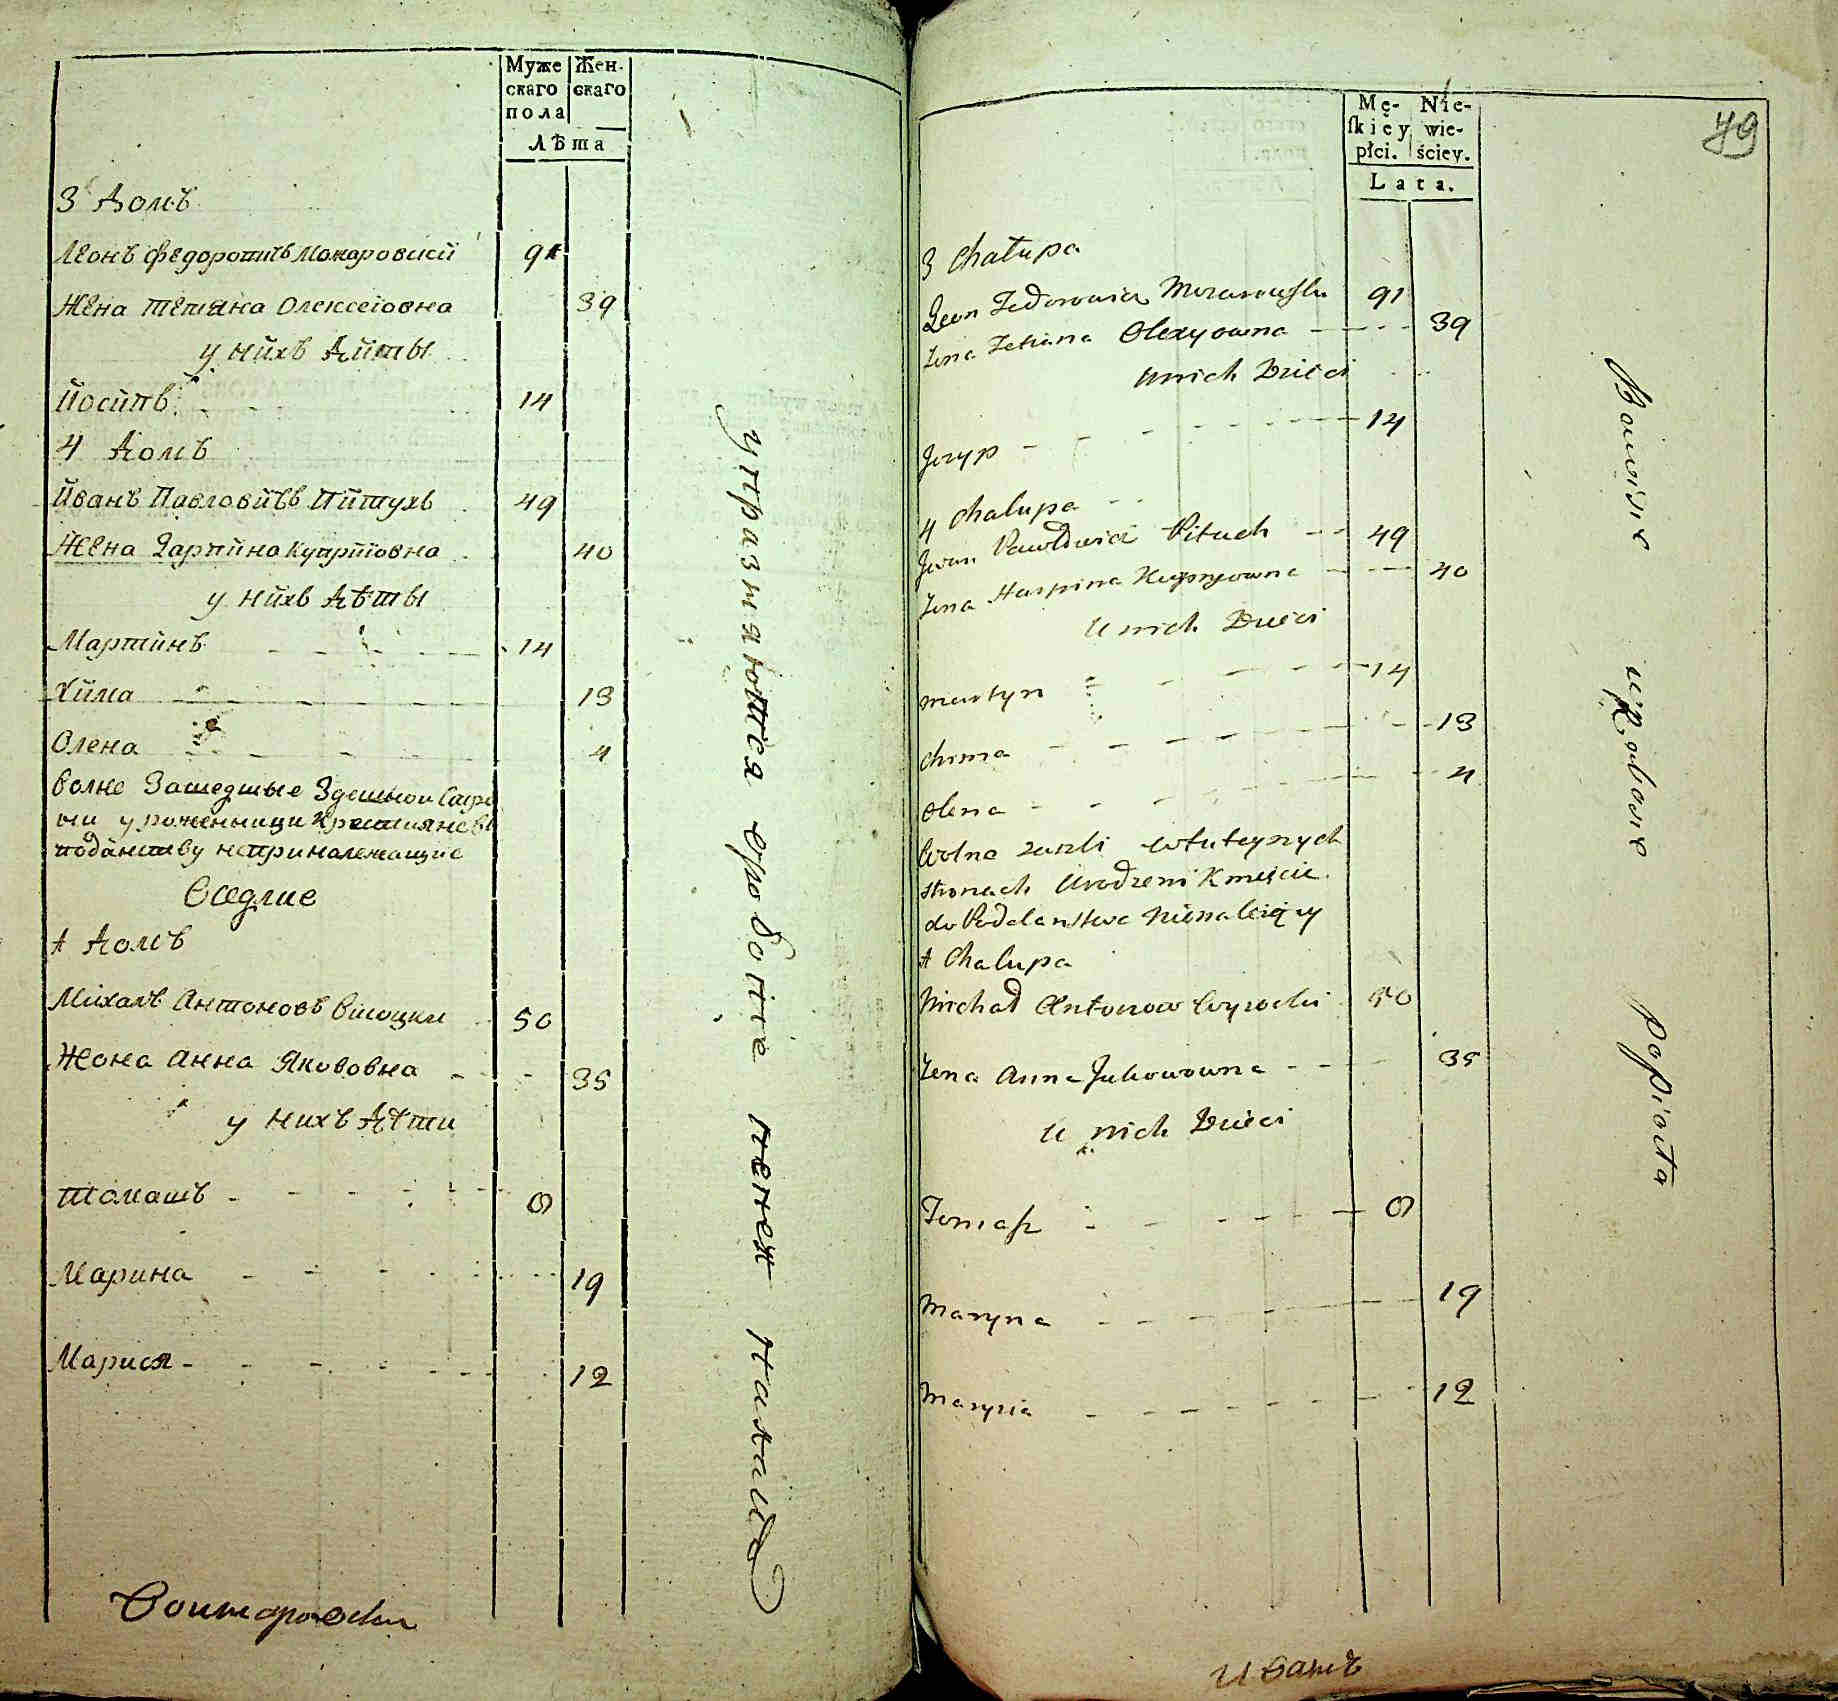 Муже Жен-
скаго скаго
пола
Лѣта
3 Домъ
Леонъ Федоровичъ Мокаровский 91
Жена Тетяна Олексеiовна 39
у нихъ Дѣты
Йосипъ 14
4 Домъ
Йванъ Павловичъ Пйтухъ 49
Жена Гарпйна Куприiовна 40
у нйхъ Дѣты
Мартйнъ 14
Хйма 13
Олена 4
волне Зашедшые Здешнои Сторо
ни уроженници Крестияне въ
поданству непринележащие
Оседлие
А Домъ
Михалъ Антоновъ 50
Жона Анна Якововна 35
у нихъ Дѣти
Томашъ 8
Марина 19
Марися 12
упразняются вработiе
49
Mę- Nie-
skiey wie-
płci. ściey.
Lata.
3 Chałupa
Leon Fedorowicz 91
Żona Tetiana Olexyowna 39
U nich Dzieci
Jozyp 14
4 Chalupa
Jwan Pawłowicz Pituch 49
Żona Harpina Kupryowna 40
U nich Dzieci
Martyn 14
Chima 13
Olena 4
Wolne zaszli wtuteyszych
stronach Urodzeni Kmiecie
do Poddanstwa Nienalezący
A Chalupa
Michał Antonow Wysocki 50
Żona Anna Jakowowna 35
U nich Dzieci
Tomasz 8
Maryna 19
Marysia 12
Bawisie
Иванъ